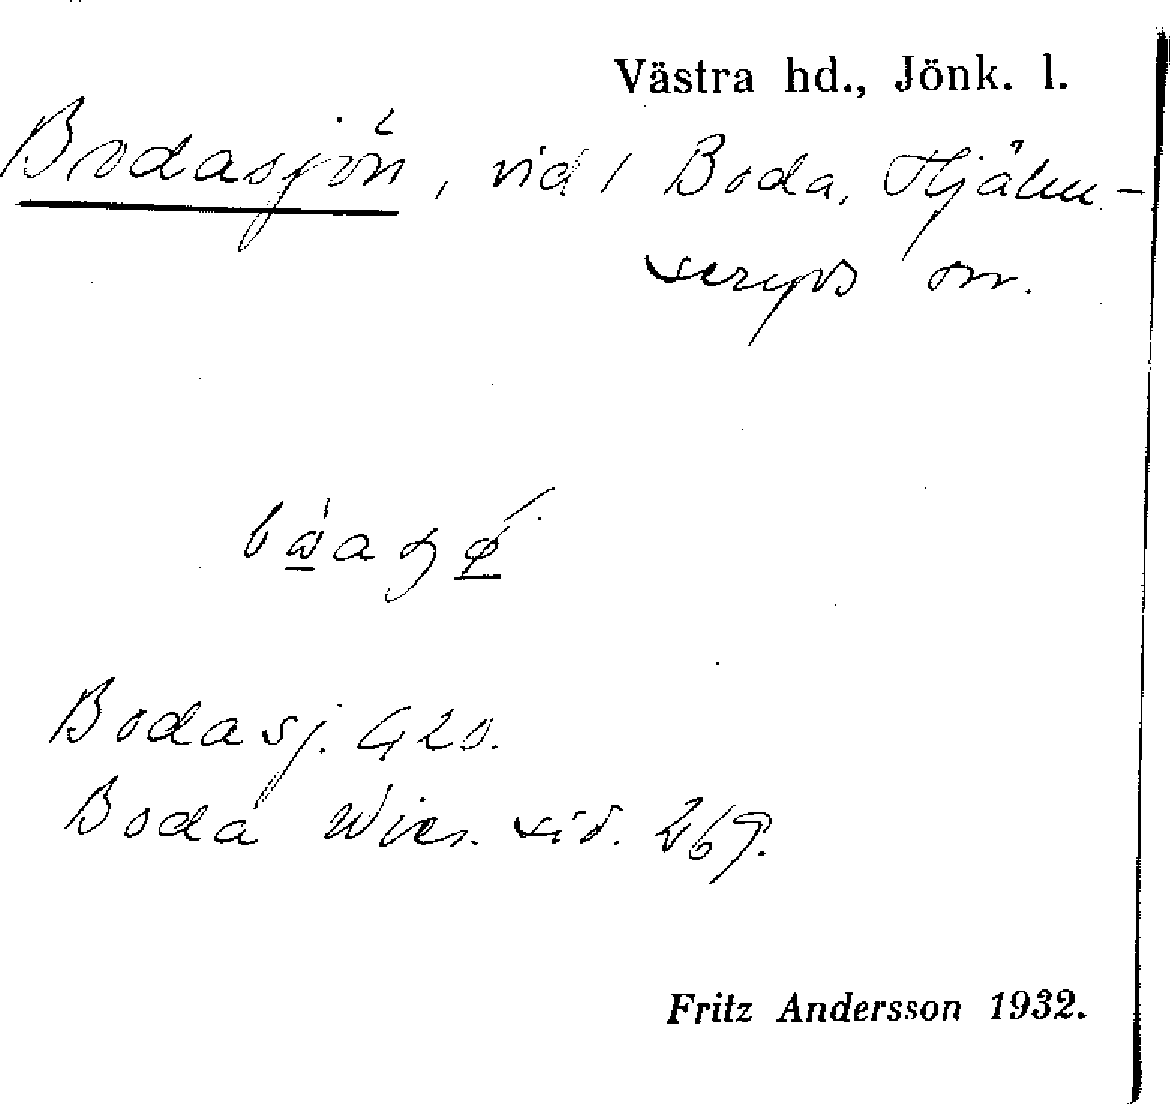 Västra hd., Jönk. l.
Bodasjön, vid / Boda, Hjälm-
seryds sn.
Bodasj. GKs.
Boda Wies. sid. 269.
Fritz Andersson 1932.